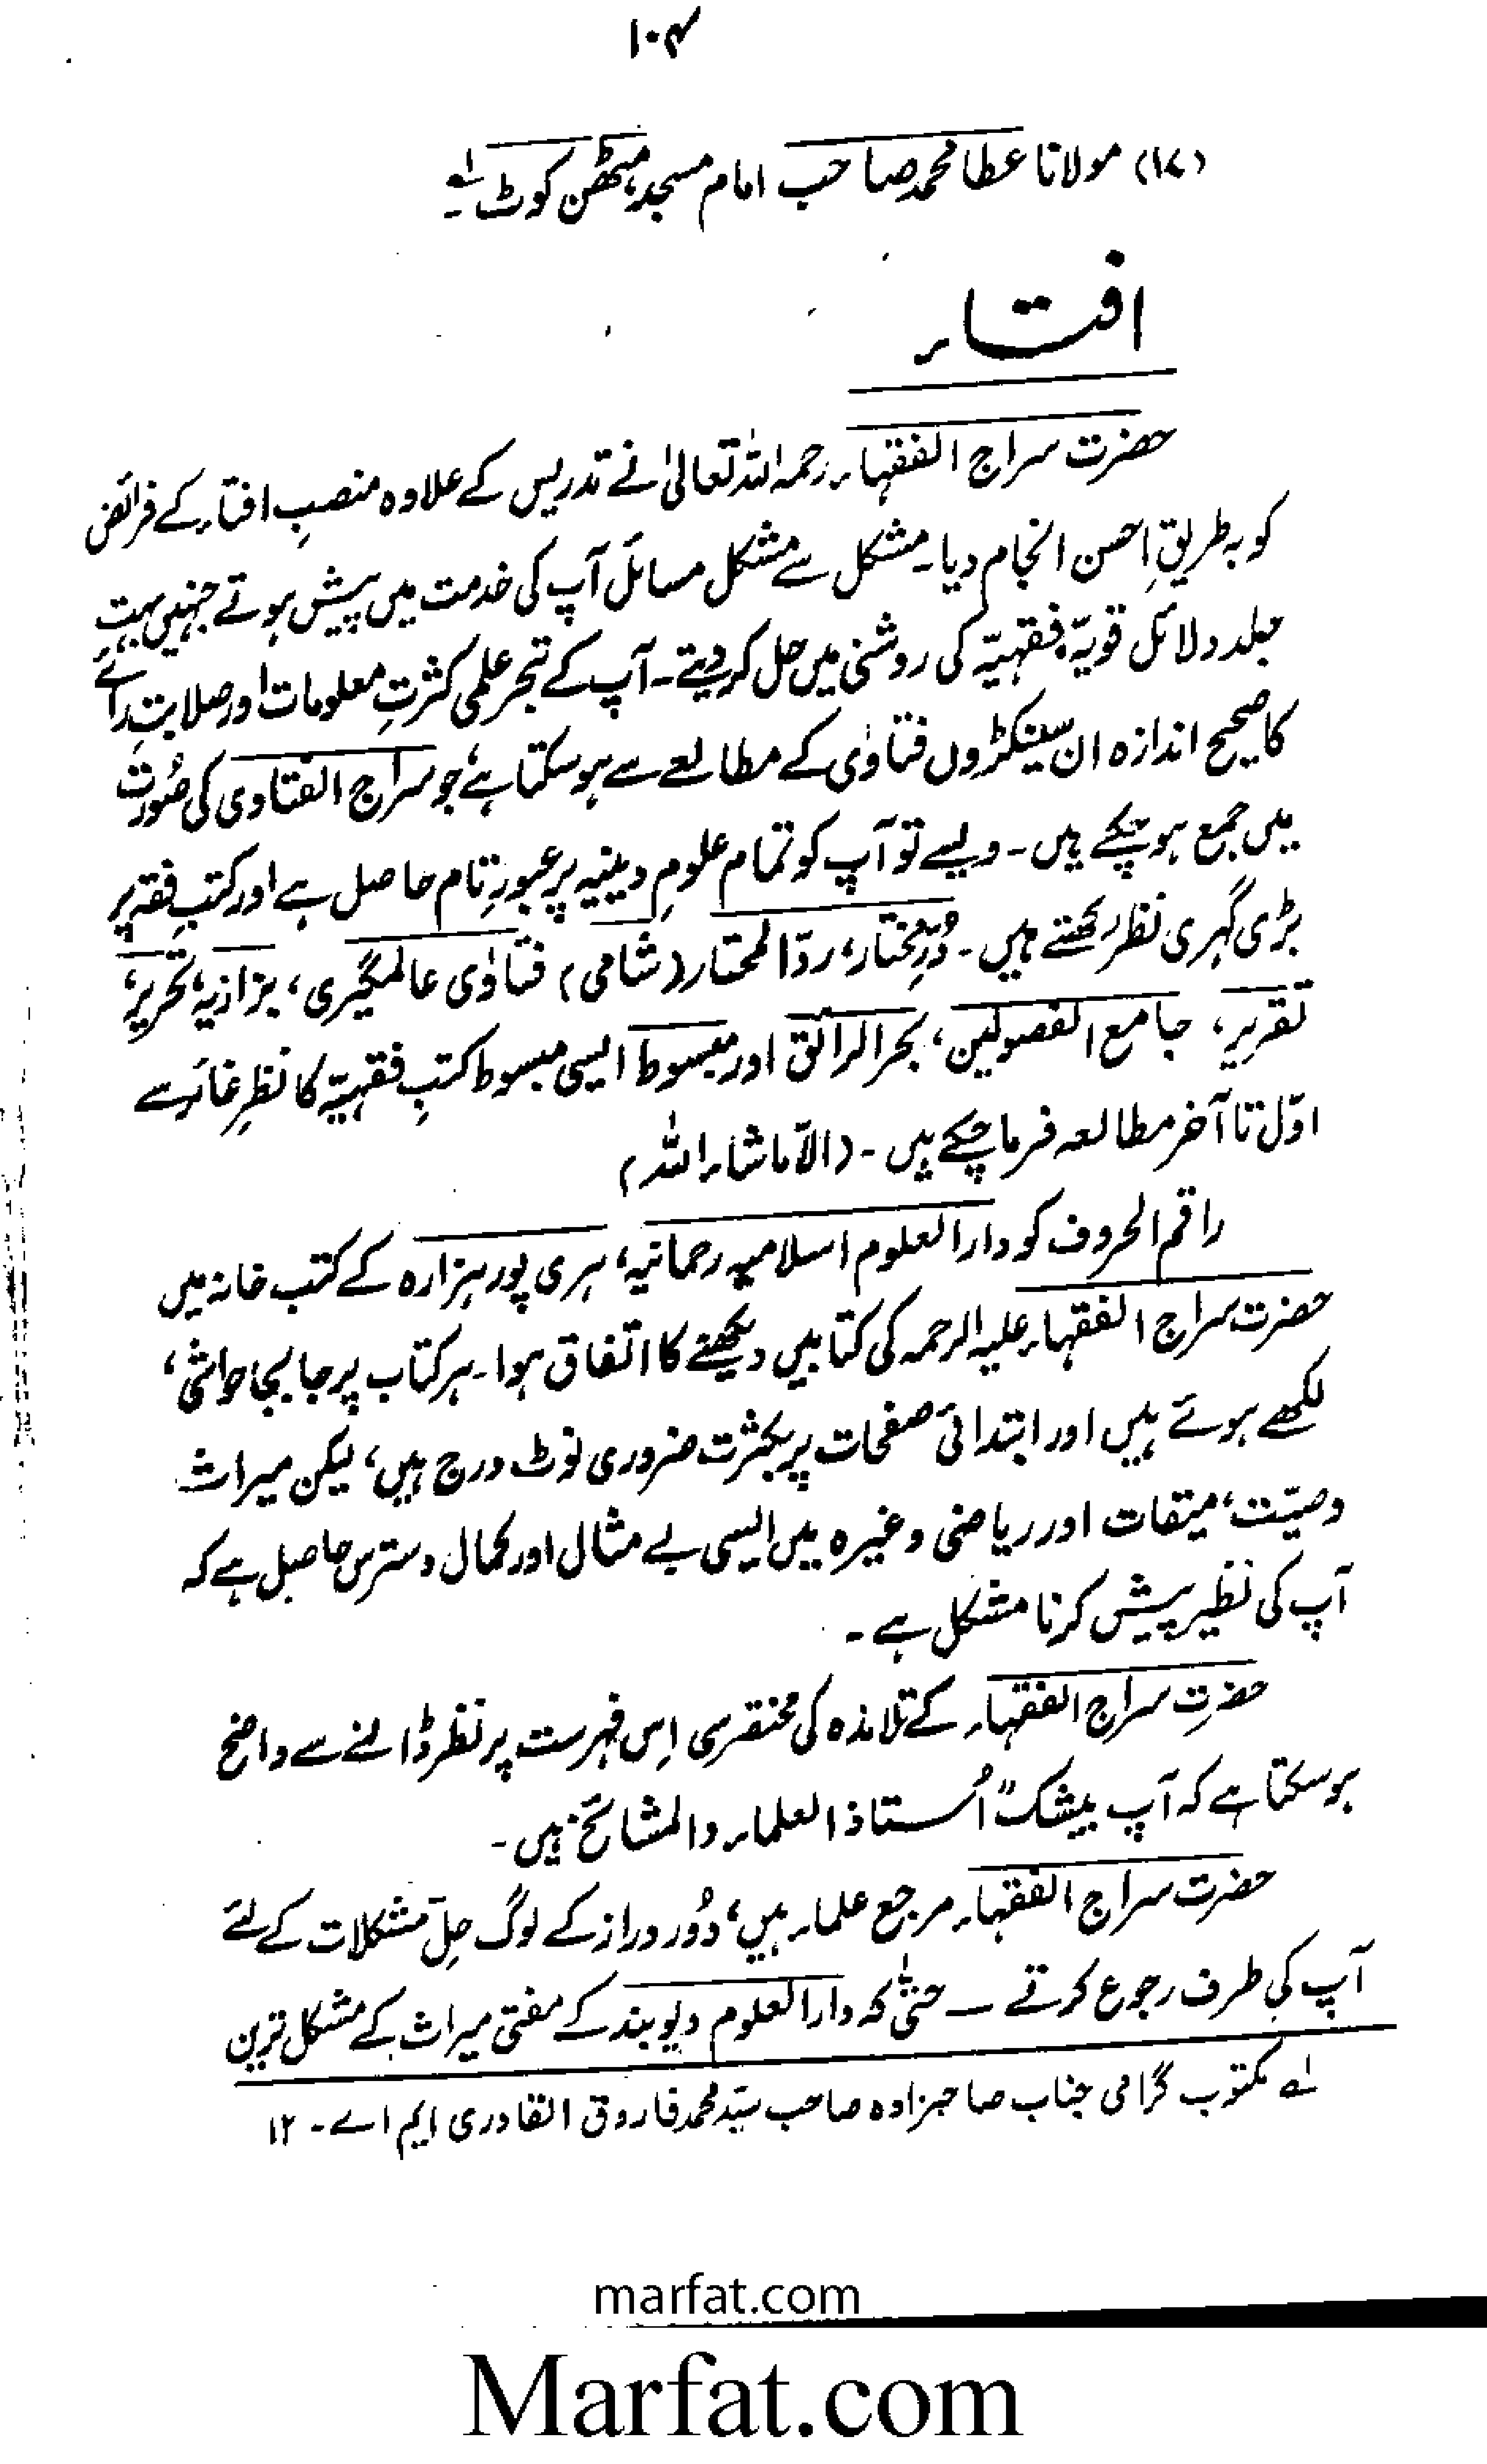 ۱۰۴
(۱۷) مولانا عطا محمد صاحب امام مسجد مٹھن کوٹ۔ لہ
افتاء
حضرت سراج الفقہاء رحمہ اللہ تعالیٰ نے تدریس کے علاوہ منصبِ افتاء کے فرائض
کو بہ طریقِ احسن انجام دیا۔ مشکل سے مشکل مسائل آپ کی خدمت میں پیش ہوتے جنہیں بہت
جلد دلائل قویّہ فقہیّہ کی روشنی میں حل کر دیتے۔ آپ کے تبحر علمی کثرتِ معلومات اور صلابتِ رائے
کا صحیح اندازہ ان سینکڑوں فتاوٰی کے مطالعے سے ہو سکتا ہے، جو سراج الفتاوی کی صُورت
میں جمع ہو چکے ہیں۔ ویسے تو آپ کو تمام علومِ دینیہ پر عبورِ تام حاصل ہے اور کتبِ فقہ پر
بڑی گہری نظر رکھتے ہیں۔ دُرِّ مختار، ردّ المحتار (شامی) فتاوٰی عالمگیری، بزازیہ، تحریر،
تقریر، جامع الفصولین، بحر الرائق اور مبسوط ایسی مبسوط کتبِ فقہیّہ کا نظرِ غائر سے
اوّل تا آخر مطالعہ فرما چکے ہیں۔ (الّا ماشاء اللہ)
راقم الحروف کو دار العلوم اسلامیہ رحمانیہ، ہری پور ہزارہ کے کتب خانہ میں
حضرت سراج الفقہاء علیہ الرحمہ کی کتابیں دیکھنے کا اتفاق ہوا۔ ہر کتاب پر جا بجا حواشی،
لکھے ہوئے ہیں اور ابتدائی صفحات پر بکثرت ضروری نوٹ درج ہیں، لیکن میراث
وصیّت، میقات اور ریاضی وغیرہ میں ایسی بے مثال اور کمال دسترس حاصل ہے کہ
آپ کی نظیر پیش کرنا مشکل ہے۔
حضرتِ سراج الفقہاء کے تلامذہ کی مختصر سی اِس فہرست پر نظر ڈالنے سے واضح
ہو سکتا ہے کہ آپ بیشک "اُستاذ العلماء والمشائخ" ہیں۔
حضرت سراج الفقہاء مرجع علماء ہیں، دُور دراز کے لوگ حلِّ مشکلات کے لئے
آپ کی طرف رجوع کرتے — حتّٰی کہ دار العلوم دیوبند کے مفتی میراث کے مشکل ترین
لہ مکتوب گرامی جناب صاحبزادہ صاحب سیّد محمد فاروق القادری ایم اے۔ ۱۲
marfat.com
Marfat.com